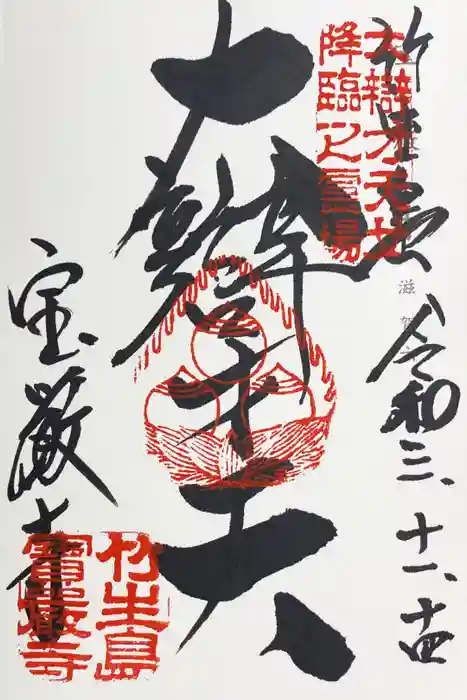 竹生島
滋賀
令和三、十一、十四
大辯才天女
降臨之霊場
大辯才天
宝厳寺
竹生島
寶嚴寺